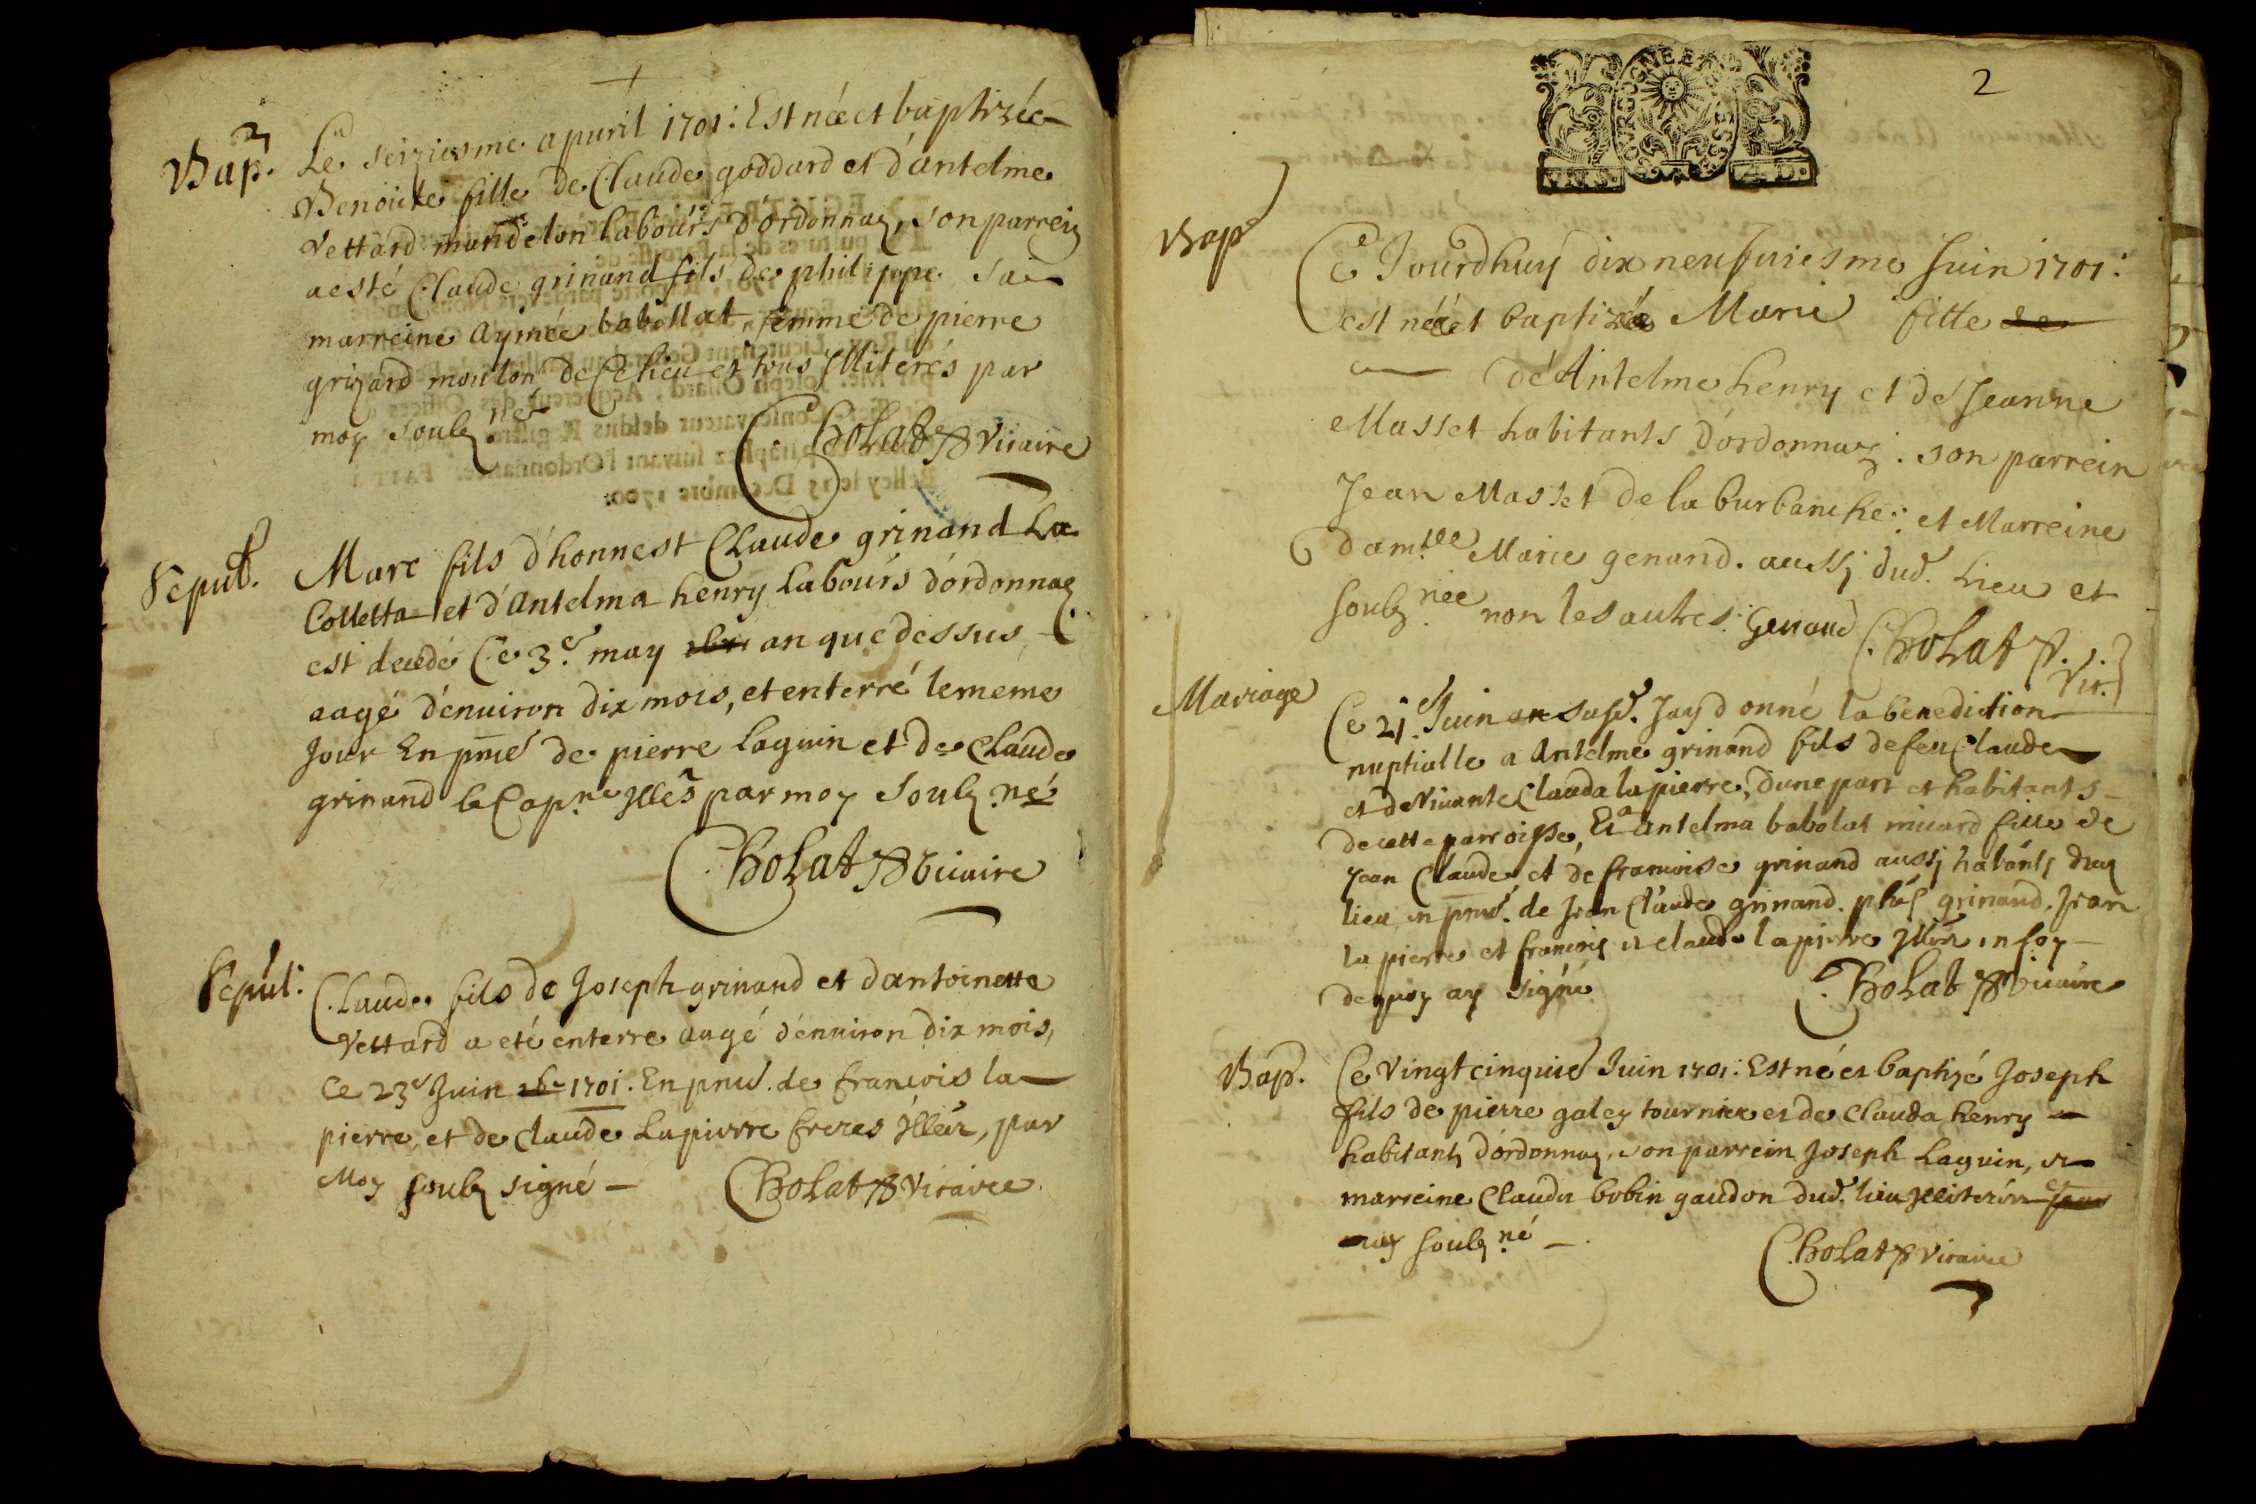 Bap.
Le seiziesme apuril 1701: Est née et baptizée
Benoicte fille de Claude goddard et d'antelme
Vettard mandelon labours d'ordonnaz, son parrein
a esté Claude grinand fils de philippe sa
marreine aymée babollat femme de pierre
grizard moulon de Ce lieu et tous Illiterés par
moy soubz.né
Cholat Vicaire
Sepult.
Marc fils d'honnest Claude grinand La
Colletta et d'Antelma henry labours d'ordonnaz
est decedé Ce 3.e may an que dessus,
aagé d'enuiron dix mois, et enterré le meme
Jour En pnce de pierre laguin et de Claude
grinand le Cap.ne Illes par moy soubz.né
Cholat Vicaire
Sepul:
Claude fils de Joseph grinand et d'antoinetta
Vettard a eté enterre aagé d'enuiron dix mois,
Ce 23e Juin 1701. En pnce. de francois la
pierre, et de Claude Lapierre freres Illés, par
Moy soubz signé
Cholat Vicaire
2
BOURGOGNE ET BRESSE
Bap
Ce Jourdhuy dix neufuiesme Juin 1701:
est née et baptizée Marie fille de
d'Antelme henry et de Jeanne
Masset habitants d'ordonnaz. son parrein
Jean Masset de la burbanche: et Marreine
dam.lle Marie genand. aussj dud. lieu et
soubz.née non les autres. Genand Cholat
Vic.
Mariage
Ce 21.e Juin an susd. Jay donné la benediction
nuptialle a Antelme grinand fils de feu Claude
et de Viuante Clauda lapierre, dune part et habitants
de cette parroisse, Et a antelma babolat fille de
Jean Claude et de francoise grinand aussj habants dud
lieu en pnce. de Jean Claude grinand. grinand, Jean
la pierre et francois et claude lapierre Illés en foy
de quoy ay signé
Cholat Vicaire
Bap.
Ce Vingt cinquie Juin 1701: Est né et baptizé Joseph
fils de pierre galey tournier et de Clauda henry
habitants d'ordonnaz, son parrein Joseph Laguin, et
marreine Clauda bobin gaudon dud. lieu Illiterés par
moy soubz.né
Cholat Vicaire